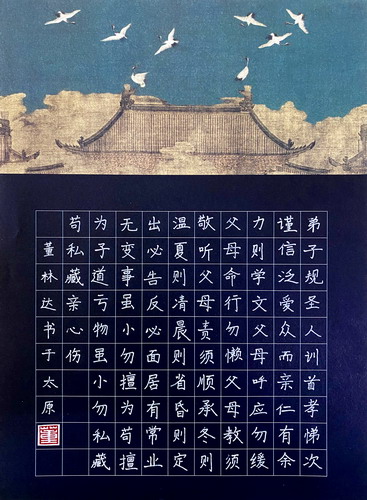 弟子规圣人训首孝悌次
谨信泛爱众而亲仁有余
力则学文父母呼应勿缓
父母命行勿懒父母教须
敬听父母责须顺承冬则
温夏则凊晨则省昏则定
出必告反必面居有常业
无变事虽小勿擅为苟擅
为子道亏物虽小勿私藏
苟私藏亲心伤
董林达书于太原